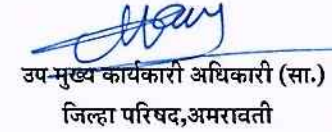 उप-मुख्य कार्यकारी अधिकारी (सा.)
जिल्हा परिषद,अमरावती